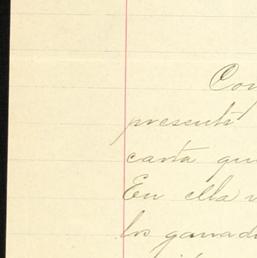 Con
presente
carta que
En ella v
los ganad